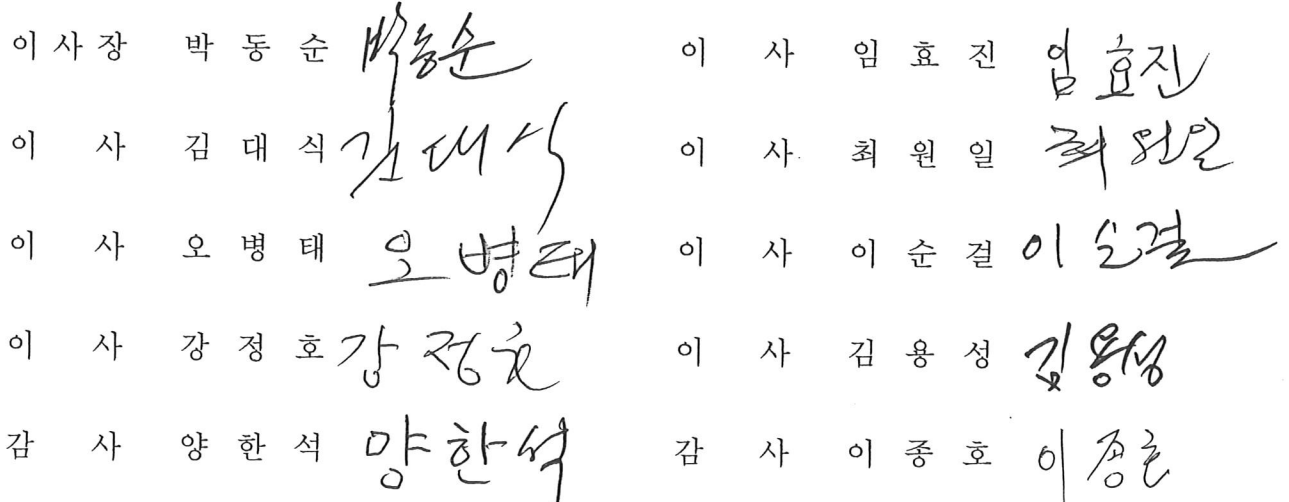 이 사 장 박 동 순 박동순
이 사 김 대 식 김대식
이 사 오 병 태 오병태
이 사 강 정 호 강정호
감 사 양 한 석 양한석
이 사 임 효 진 임효진
이 사 최 원 일 최원일
이 사 이 순 걸 이순걸
이 사 김 용 성 김용성
감 사 이 종 호 이종호